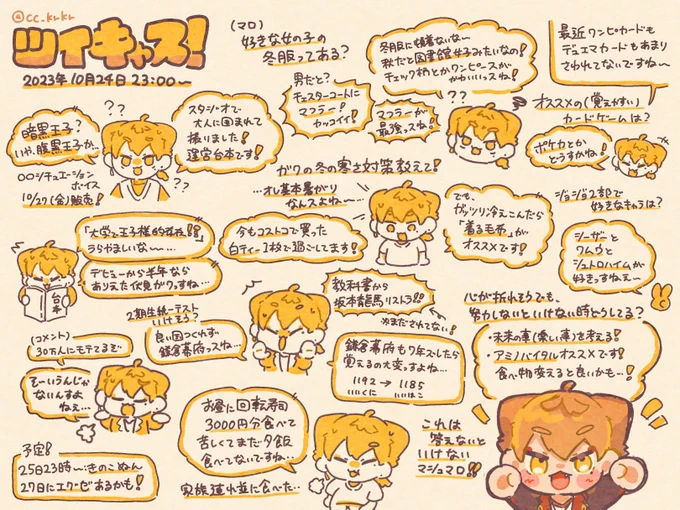 @cc_krkr
ツイキャス!
2023年10月24日 23:00〜
(マロ)
好きな女の子の
冬服ってある?
冬服に頓着ないな〜
秋だと図書館女子みたいなの!
チェック柄とかワンピースが
かわいいっスね!
最近ワンピカードも
デュエマカードもあまり
さわれてないですね〜
男だと?
チェスターコートに
マフラー!
カッコイイ!
マフラーが
最強っスね!
??
オススメの(覚えやすい)
カードゲームは?
ポケカとか
どうすかね!
??
暗黒王子?
いや、腹黒王子か…
○○シチュエーション
ボイス
10/27(金)販売!
スタジオで
大人に囲まれて
撮りました!
運営台本です!
??
ガクの冬の寒さ対策教えて!
…オレ基本暑がり
なんスよね〜…
今もコストコで買った
白ティー1枚で過ごしてます!
でも、
ガッツリ冷えこんだら
「着る毛布」が
オススメです!
ジョジョ2部で
好きなキャラは?
シーザーと
ワムウと
シュトロハイムが
好きっすねぇ〜
「大学で王子様的存在!!」
うらやましいな〜…
デビューから半年なら
ありえた伏見ガクすね…
台本
教科書から
坂本龍馬リストラ!!
※まだされてない!
2期生統一テスト
いけそう?
良い国つくれず
鎌倉幕府っスね…
鎌倉幕府も7年ズレしたら
覚えるの大変っすよね…
1192 → 1185
いいくに いいはこ
心が折れそうでも、
努力しないといけない時どうしてる?
・未来の事(楽しい事)を考える!
・アミノバイタルオススメです!
食べ物変えると良いかも…!
(コメント)
30万人にモテてるで
そーいうんじゃ
ないんすよ
ねぇ…
お昼に回転寿司
3000円分食べて
苦しくてまだ夕飯
食べてないですね…
家族連れ並に食べた…
これは
答えないと
いけない
マシュマロ!!
予定!
25日23時〜:きのこぬん
27日にエクゼあるかも!